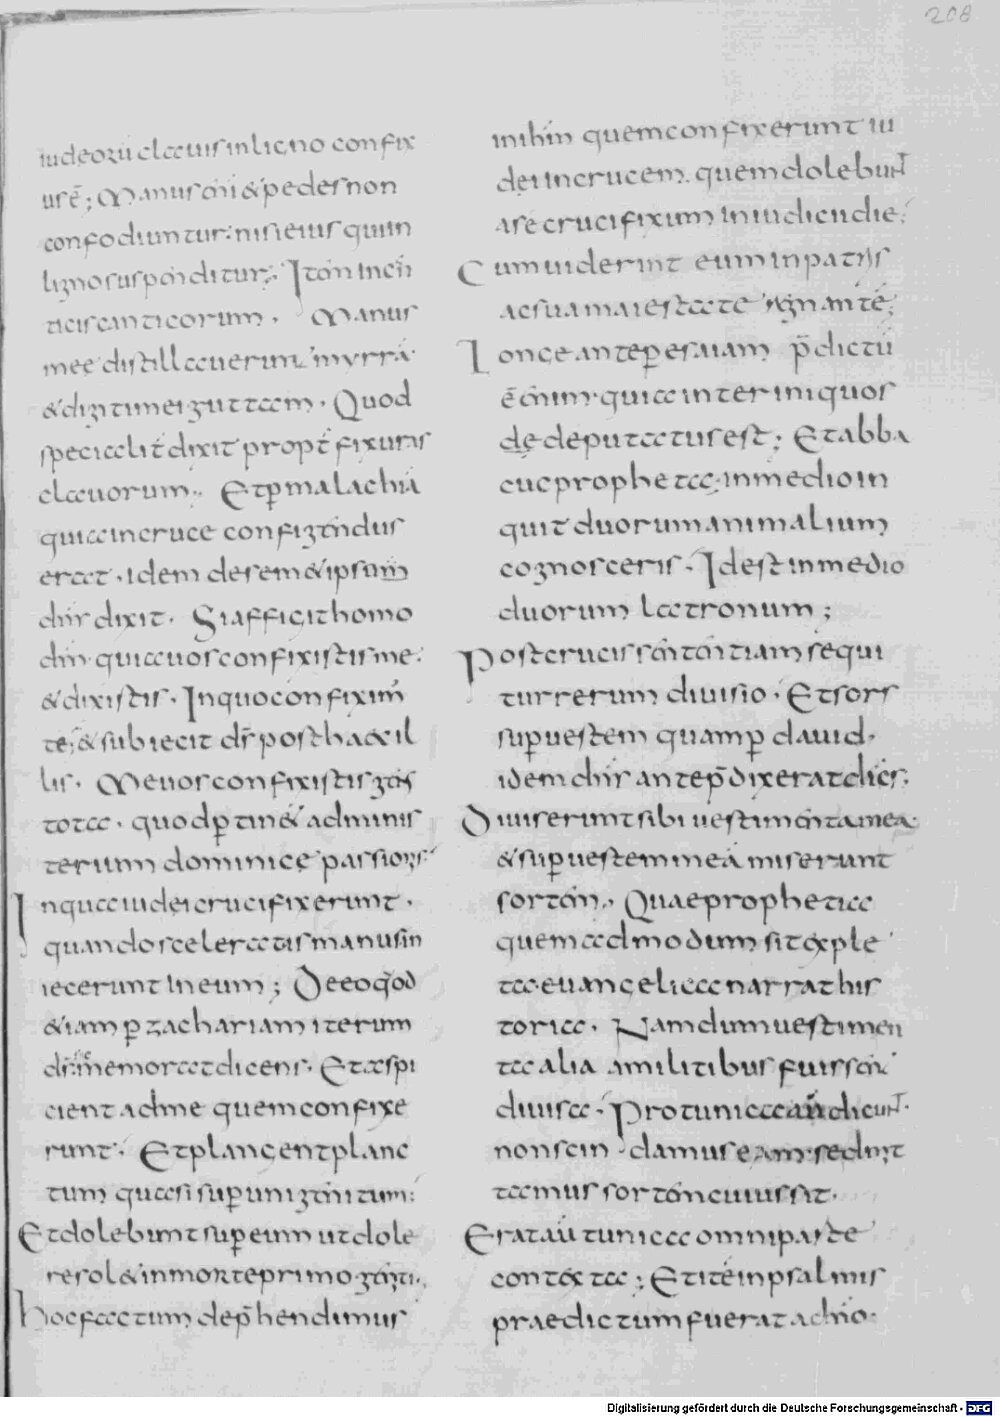 208
iudeorū clauis in ligno confix
us ē; Manus eni & pedes non
confodiuntur: nisi eius qui in
ligno suspenditur; Item in cen
ticis canticorum. Manus
meę distillauerunt myrra
& digiti mei guttam. Quod
specialit dixit propt fixuras
clauorum; Et p malachiā
quia in cruce configendus
erat. idem de sem&ipsum
dns dixit. Si affigit homo
dm quia uos confixistis me.
& dixistis. In quo confixim
te; & subiecit ds post haec il
lis. Me uos confixistis gens
tota. quod ptin& ad minis
terium dominicę passionis
In qua iudei crucifixerunt.
quando sceleratas manus in
iecerunt in eum; De eo qđ
& iam p zachariam iterum
ds memorat dicens. Et aspi
cient ad me quem confixe
runt. Et plangent planc
tum quasi sup unigenitum:
Et dolebunt super eum ut dole
re sol& in morte primogeniti.
Hoc factum dephendimus
in ihm quem confixerunt iu
dei in crucem. quem dolebunt
a se crucifixum in iudicii die.
Cum uiderint eum in patris
ac sua maiestate regnantē;
Longe ante p esaiam pdictū
ē enim. quia inter iniquos
deputatus est; Et abba
cuc propheta. in medio in
quit duorum animalium
cognosceris. Id est in medio
duorum latronum;
Post crucis sententiam sequi
tur rerum diuisio. Et sors
sup uestem quam p dauid.
idem dns ante pdixerat dicēs.
Diuiserunt sibi uestimenta mea.
& sup uestem meā miserunt
sortem. Quae prophetica
quemadmodum sit exple
ta. euangelica narrat his
toria. Nam dum uestimen
ta alia a militibus fuissent
diuisa. Pro tunica autē dicunt.
non scindamus eam. sed mit
tamus sortem cuius sit.
Erat autē tunica omni parte
contexta; Et itē in psalmis
praedictum fuerat a dno.
Digitalisierung gefördert durch die Deutsche Forschungsgemeinschaft - DFG